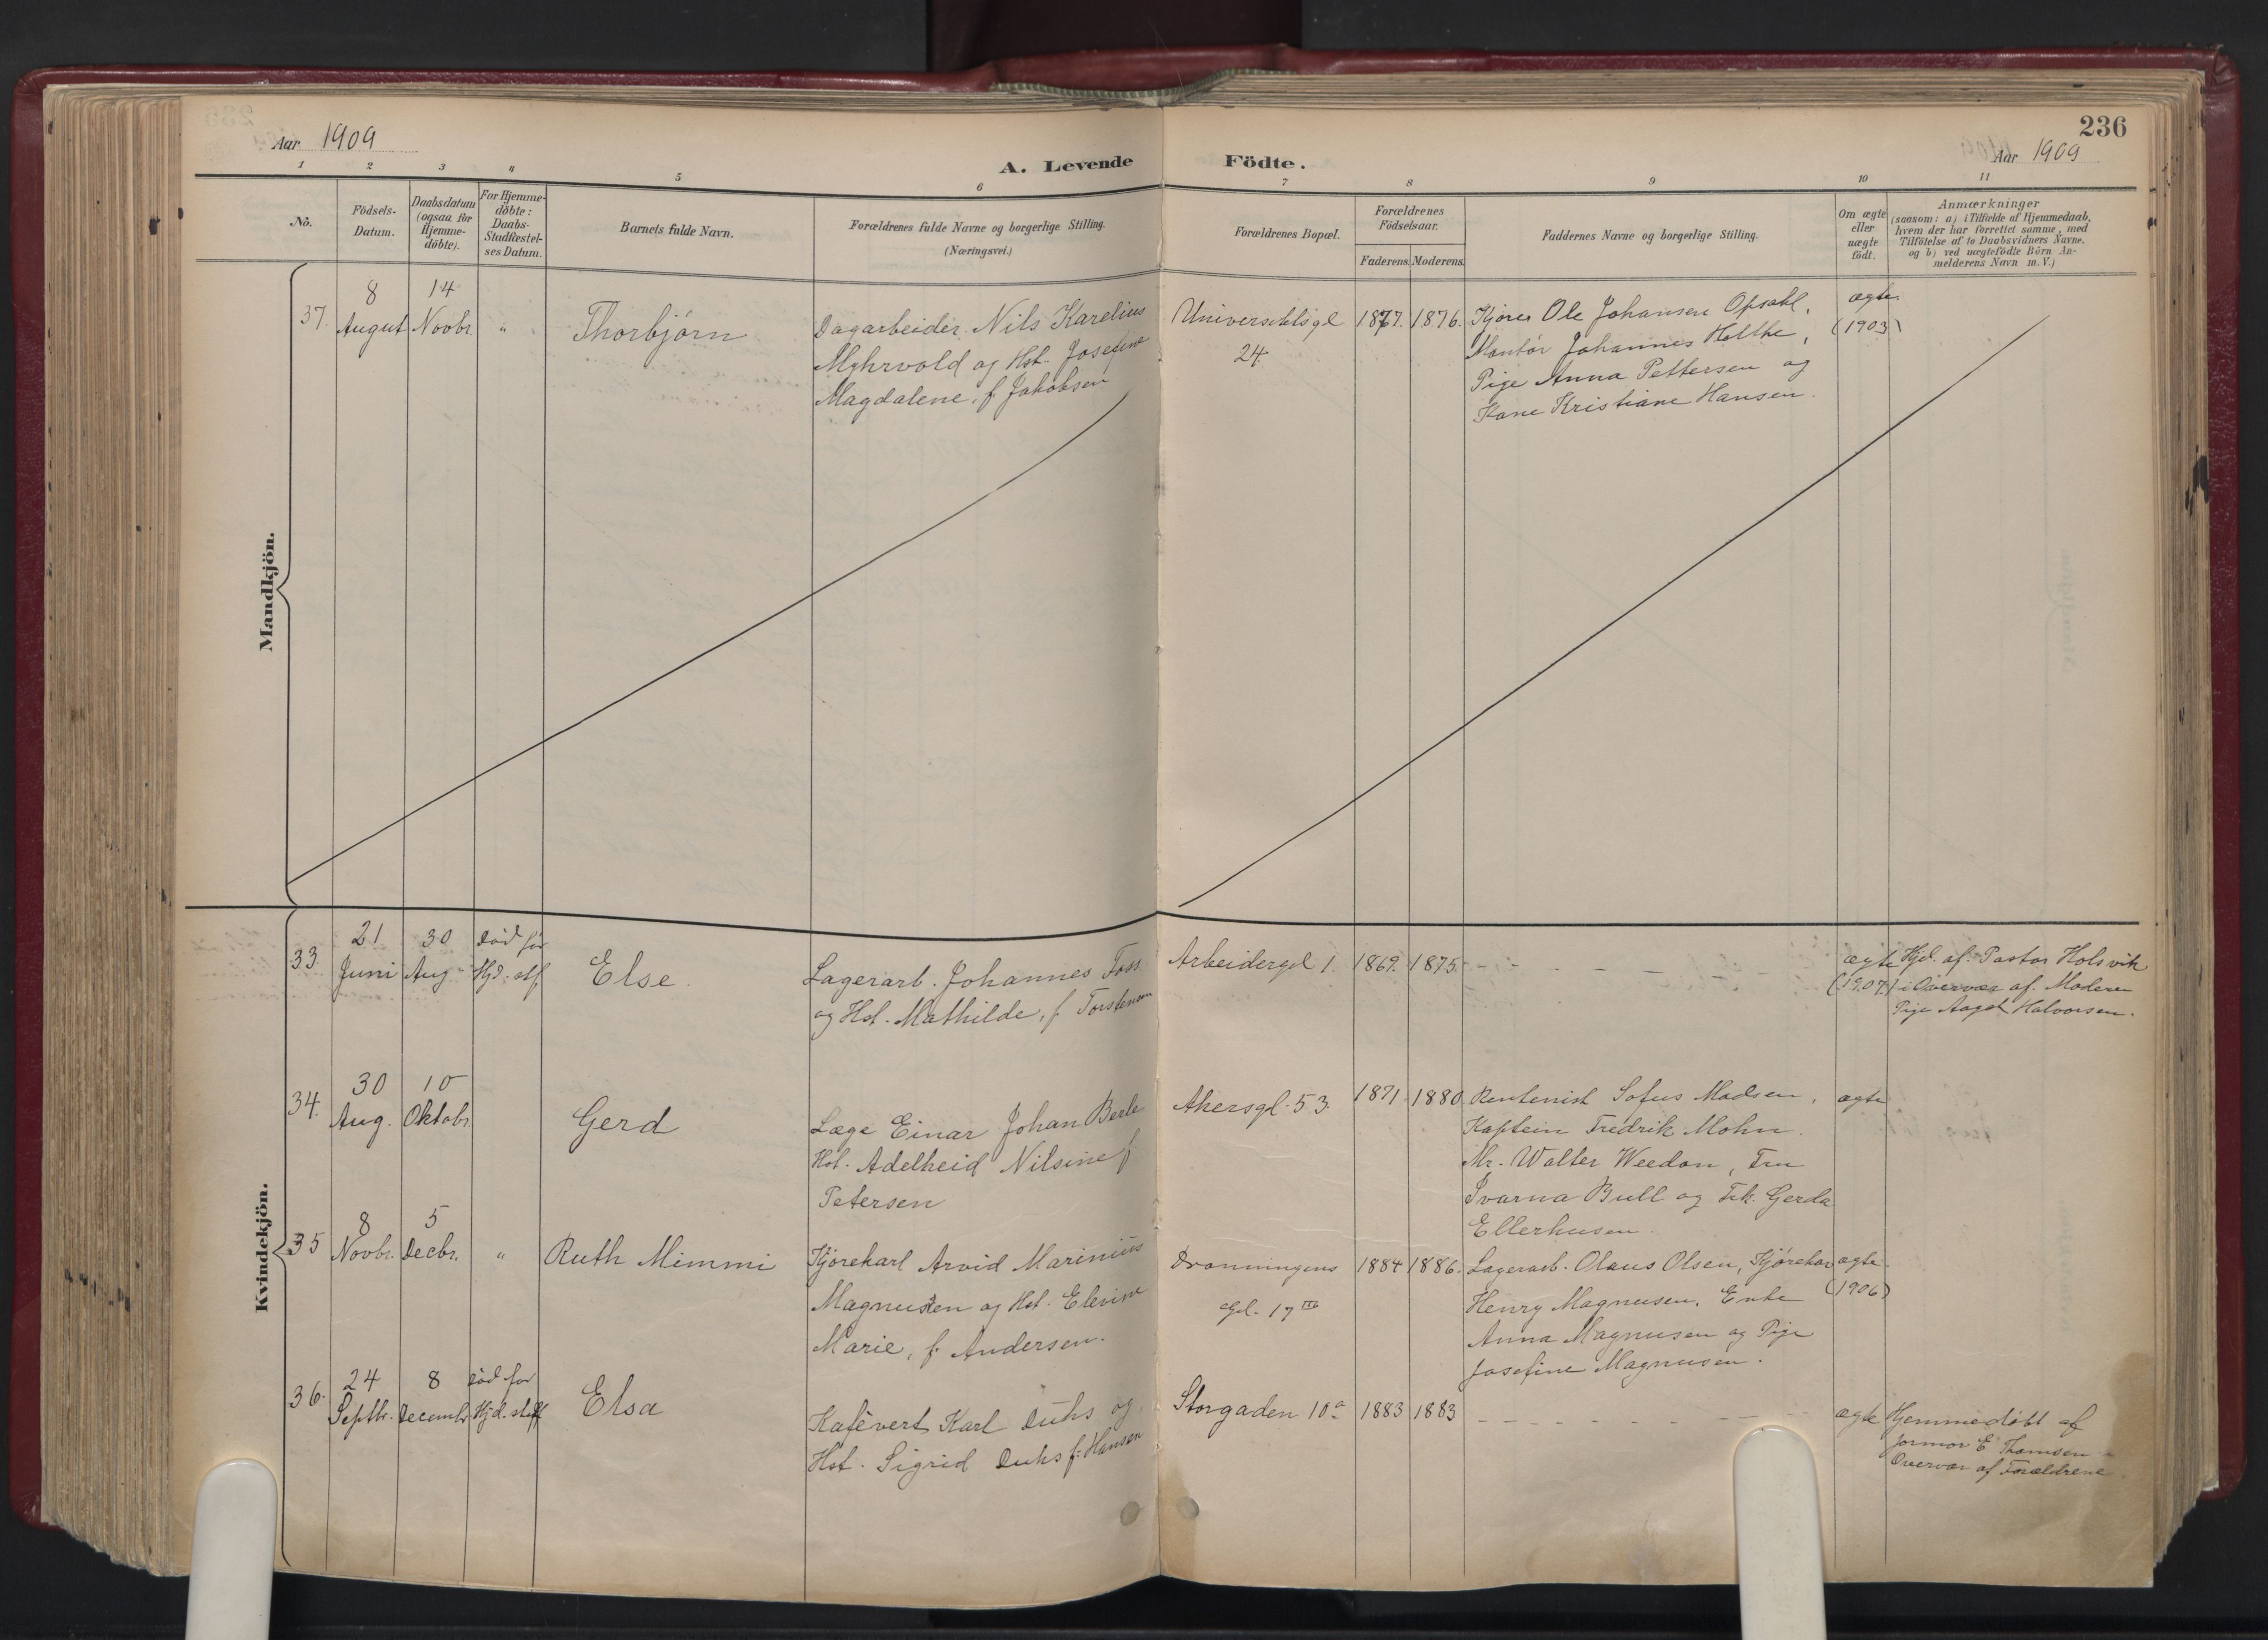 Aar 1909
A. Levende Födte.
236
Aar 1909
1 2 3 4 5 6 7 8 9 10 11
No.
Födsels-
Datum.
Daabsdatum
(ogsaa for
Hjemme-
döbte).
For Hjemme-
döbte:
Daabs-
Stadfæstel-
ses Datum.
Barnets fulde Navn.
Forældrenes fulde Navne og borgerlige Stilling.
(Næringsvei.)
Forældrenes Bopæl.
Forældrenes
Födselsaar.
Faderens. Moderens.
Faddernes Navne og borgerlige Stilling.
Om ægte
eller
uægte
födt.
Anmærkninger
(saasom: a) i Tilfælde af Hjemmedaab,
hvem der har forrettet samme, med
Tilföielse af to Daabsvidners Navne.
og b) ved uægtefödte Börn An-
melderens Navn m. V.)
Mandkjön.
37.
8
August
14
Novbr.
"
Thorbjørn
Dagarbeider Nils Karelius
Myhrvold og Hst. Josefine
Magdalene, f. Jakobsen
Universitetsgd
24.
1877. 1876.
Kjører Ole Johansen Opsahl,
Montør Johannes Holthe,
Pige Anna Pettersen og
Kone Kristiane Hansen.
ægte
(1903)
Kvindekjön.
33.
21
Juni
30
Aug
død før
Hjd. stf.
Else.
Lagerarb. Johannes Foss
og Hst. Mathilde, f. Torstensen
Arbeidergd 1.
1869. 1875.
ægte
(1907)
Hjd. af Pastor Holsvik
i Overvær af Moderen
Pige Aagot Halvorsen.
34.
30
Aug.
10
Oktobr.
Gerd
Læge Einar Johan Berle
Hst. Adelheid Nilsine f.
Petersen
Akersgd. 53.
1871. 1880.
Rentenist Sofus Madsen,
Kaptein Fredrik Mohn.
Mr. Walter Weedon, Fru
Svarna Bull og Frk. Gerda
Ellerhusen.
ægte
35
8
Novbr.
5
Decbr.
"
Ruth Mimmi
Kjørekarl Arvid Marinius
Magnusen og Hst. Elevine
Marie, f. Andersen.
Dronningens
Gd. 17 III
1884 1886.
Lagerarb. Olaus Olsen, Kjørekar
Henry Magnusen, Enke
Anna Magnusen og Pige
Josefine Magnusen.
ægte
(1906)
36.
24
Septbr.
8
Decembr
død før
Hjd. stf
Elsa
Kafévert Karl Duhs og
Hst. Sigrid Duhs f. Hansen
Storgaden 10a
1883 1883
ægte
Hjemmedøbt af
Jormor E. Thomsen
Overvær af Forældrene